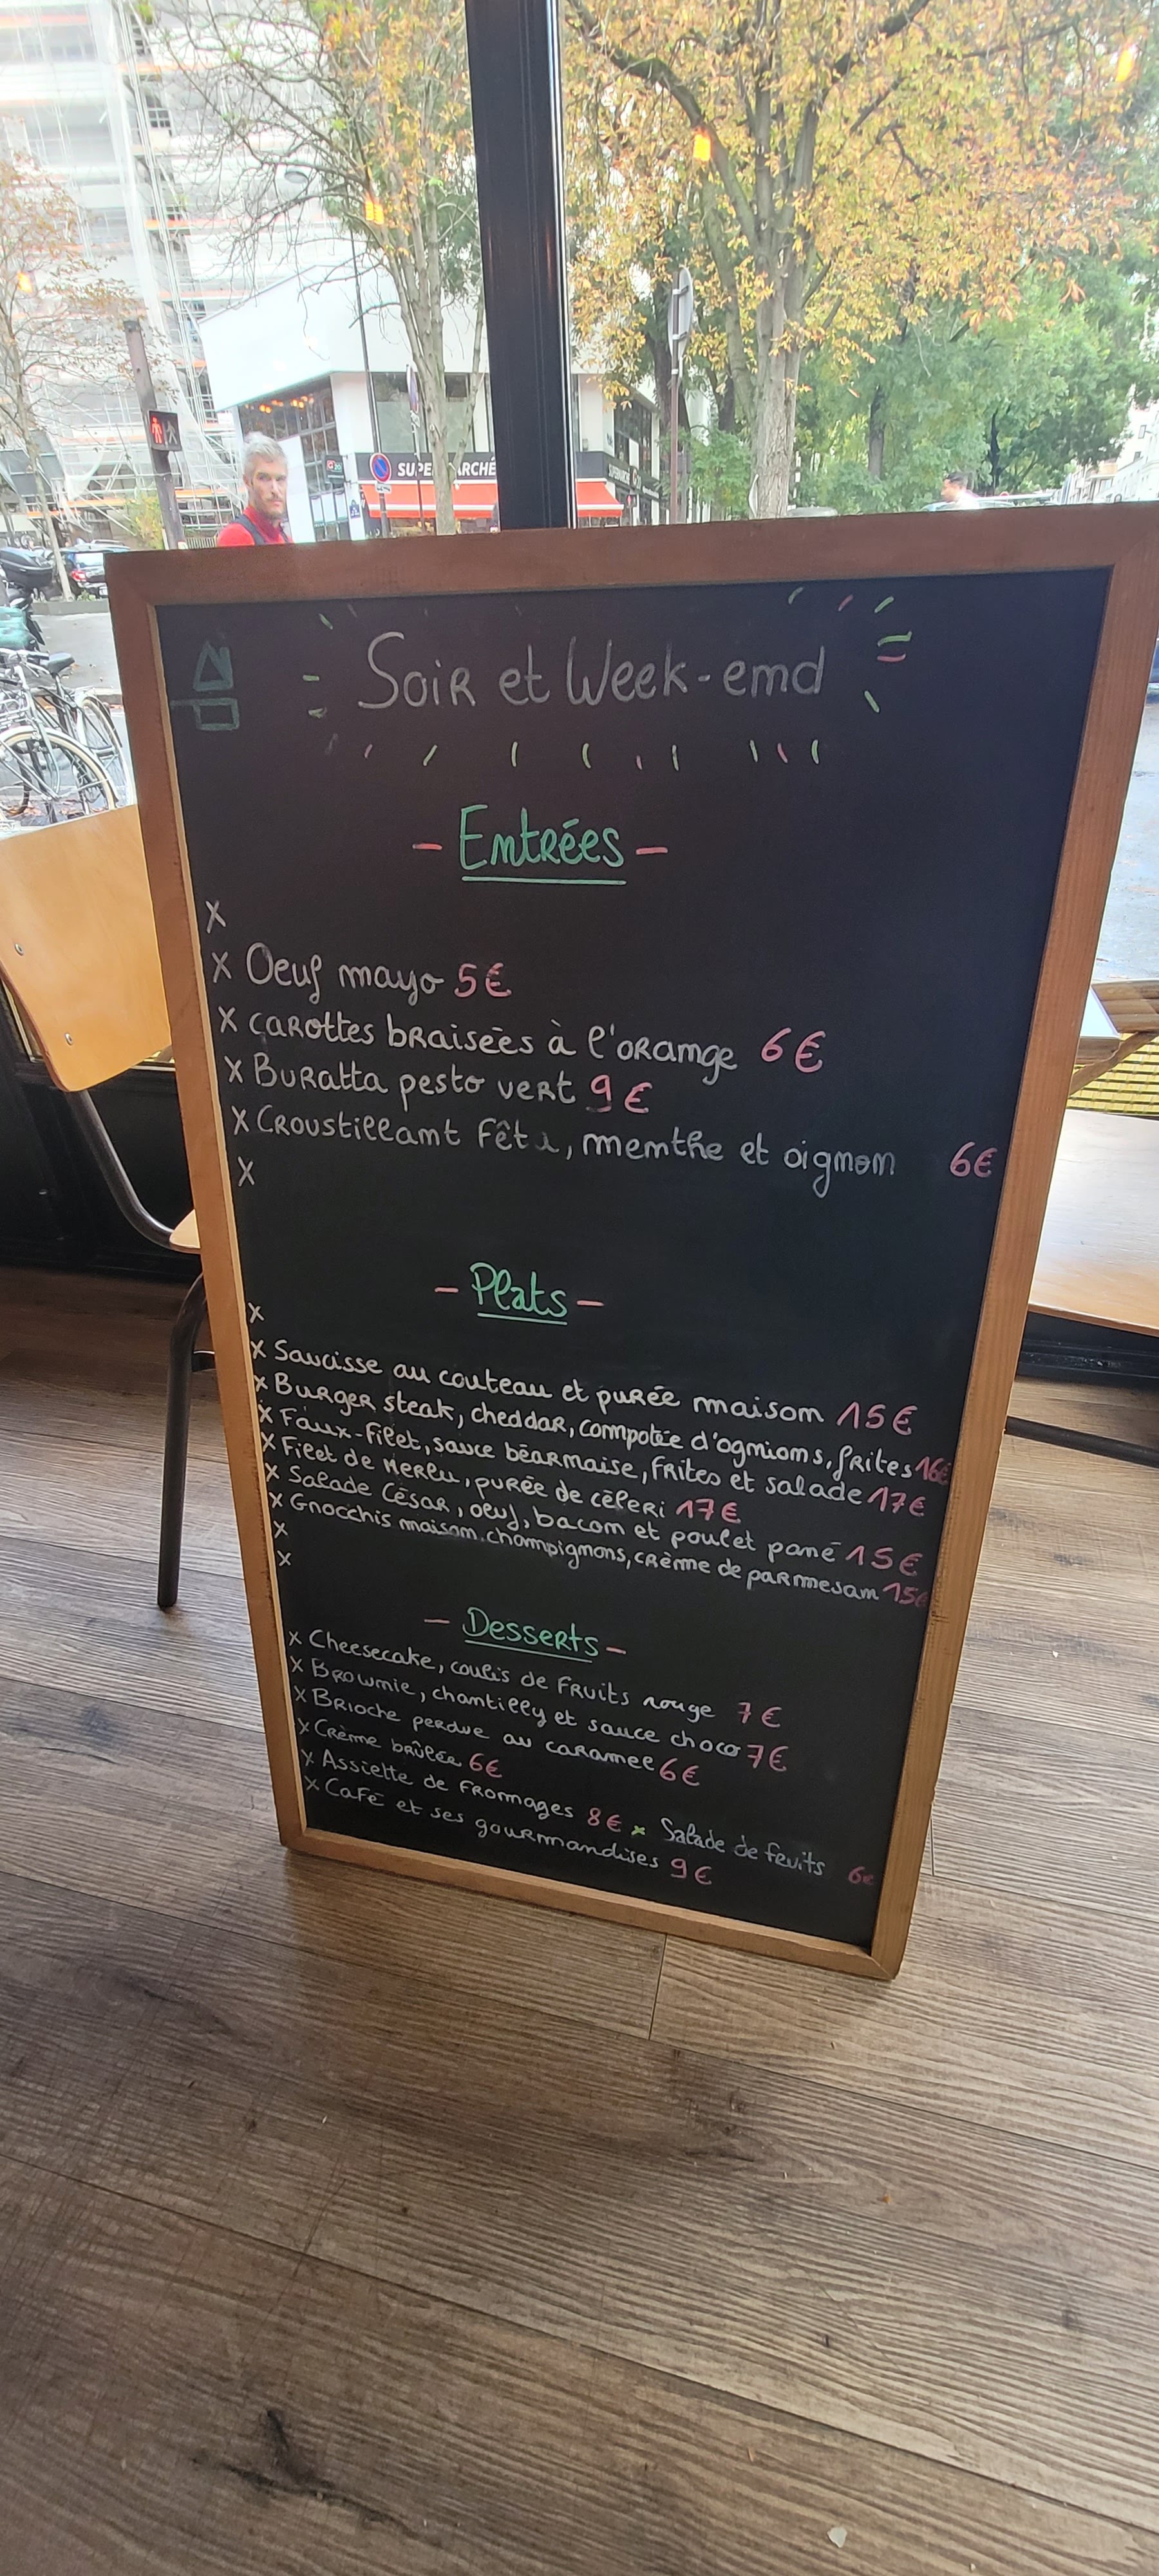 SUPERMARCHÉ
SUPERMARCHÉ
Soir et Week-end
- Entrées -
x
x Oeuf mayo 5€
x carottes braisées à l'orange 6€
x Buratta pesto vert 9€
x Croustillant fêta, menthe et oignon 6€
x
- Plats -
x
x Saucisse au couteau et purée maison 15€
x Burger steak, cheddar, compotée d'ognions, frites 16€
x Faux-Filet, sauce béarnaise, frites et salade 17€
x Filet de Merlu, purée de céleri 17€
x Salade César, oeuf, bacon et poulet pané 15€
x Gnocchis maison, champignons, crème de parmesan 15€
x
x
- Desserts -
x Cheesecake, coulis de fruits rouge 7€
x Brownie, chantilly et sauce choco 7€
x Brioche perdue au caramel 6€
x Crème brûlée 6€
x Assiette de fromages 8€ x Salade de fruits 6€
x Café et ses gourmandises 9€